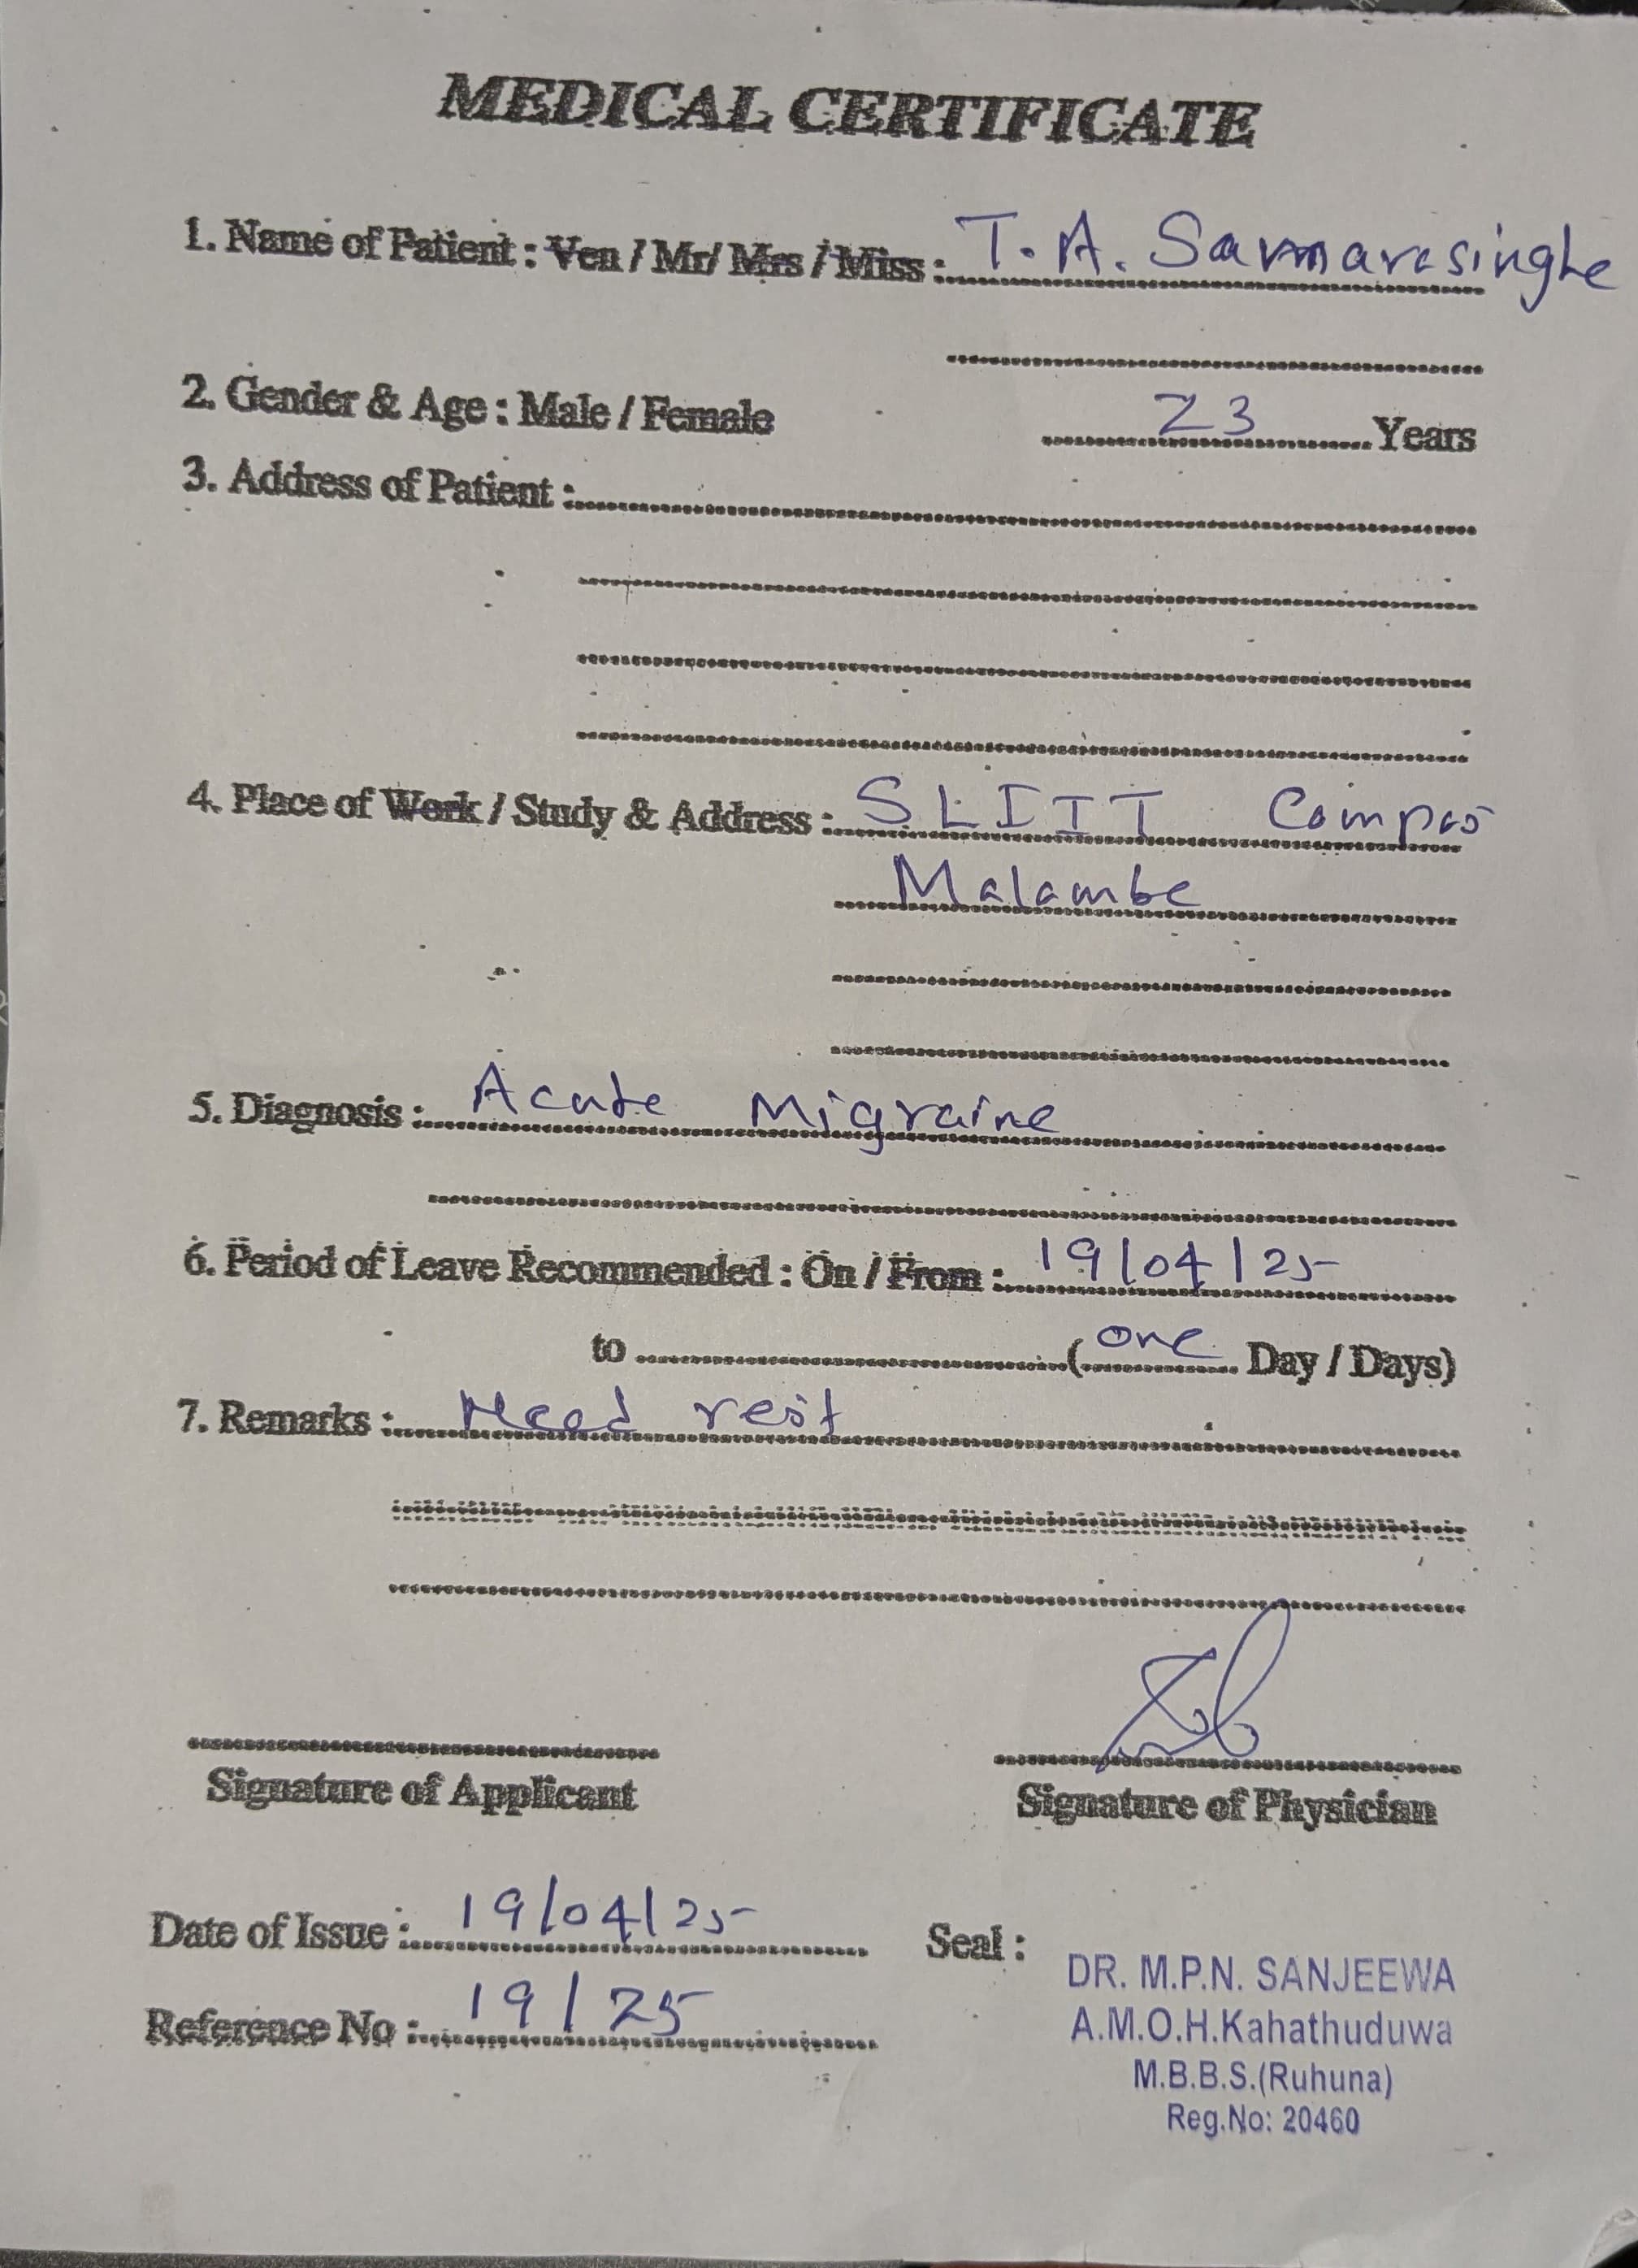 MEDICAL CERTIFICATE
1. Name of Patient : Ven / Mr/ Mrs / Miss : T. A. Samarasinghe
2. Gender & Age : Male / Female 23 Years
3. Address of Patient :
4. Place of Work / Study & Address : SLIIT Campas
Malambe
5. Diagnosis : Acute Migraine
6. Period of Leave Recommended : On / From : 19/04/25
to (one Day / Days)
7. Remarks : Need rest
Signature of Applicant
Signature of Physician
Date of Issue : 19/04/25
Reference No : 19/25
Seal :
DR. M.P.N. SANJEEWA
A.M.O.H.Kahathuduwa
M.B.B.S.(Ruhuna)
Reg.No: 20460